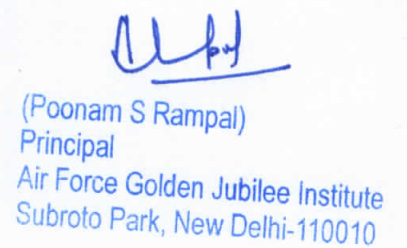 (Poonam S Rampal)
Principal
Air Force Golden Jubilee Institute
Subroto Park, New Delhi-110010